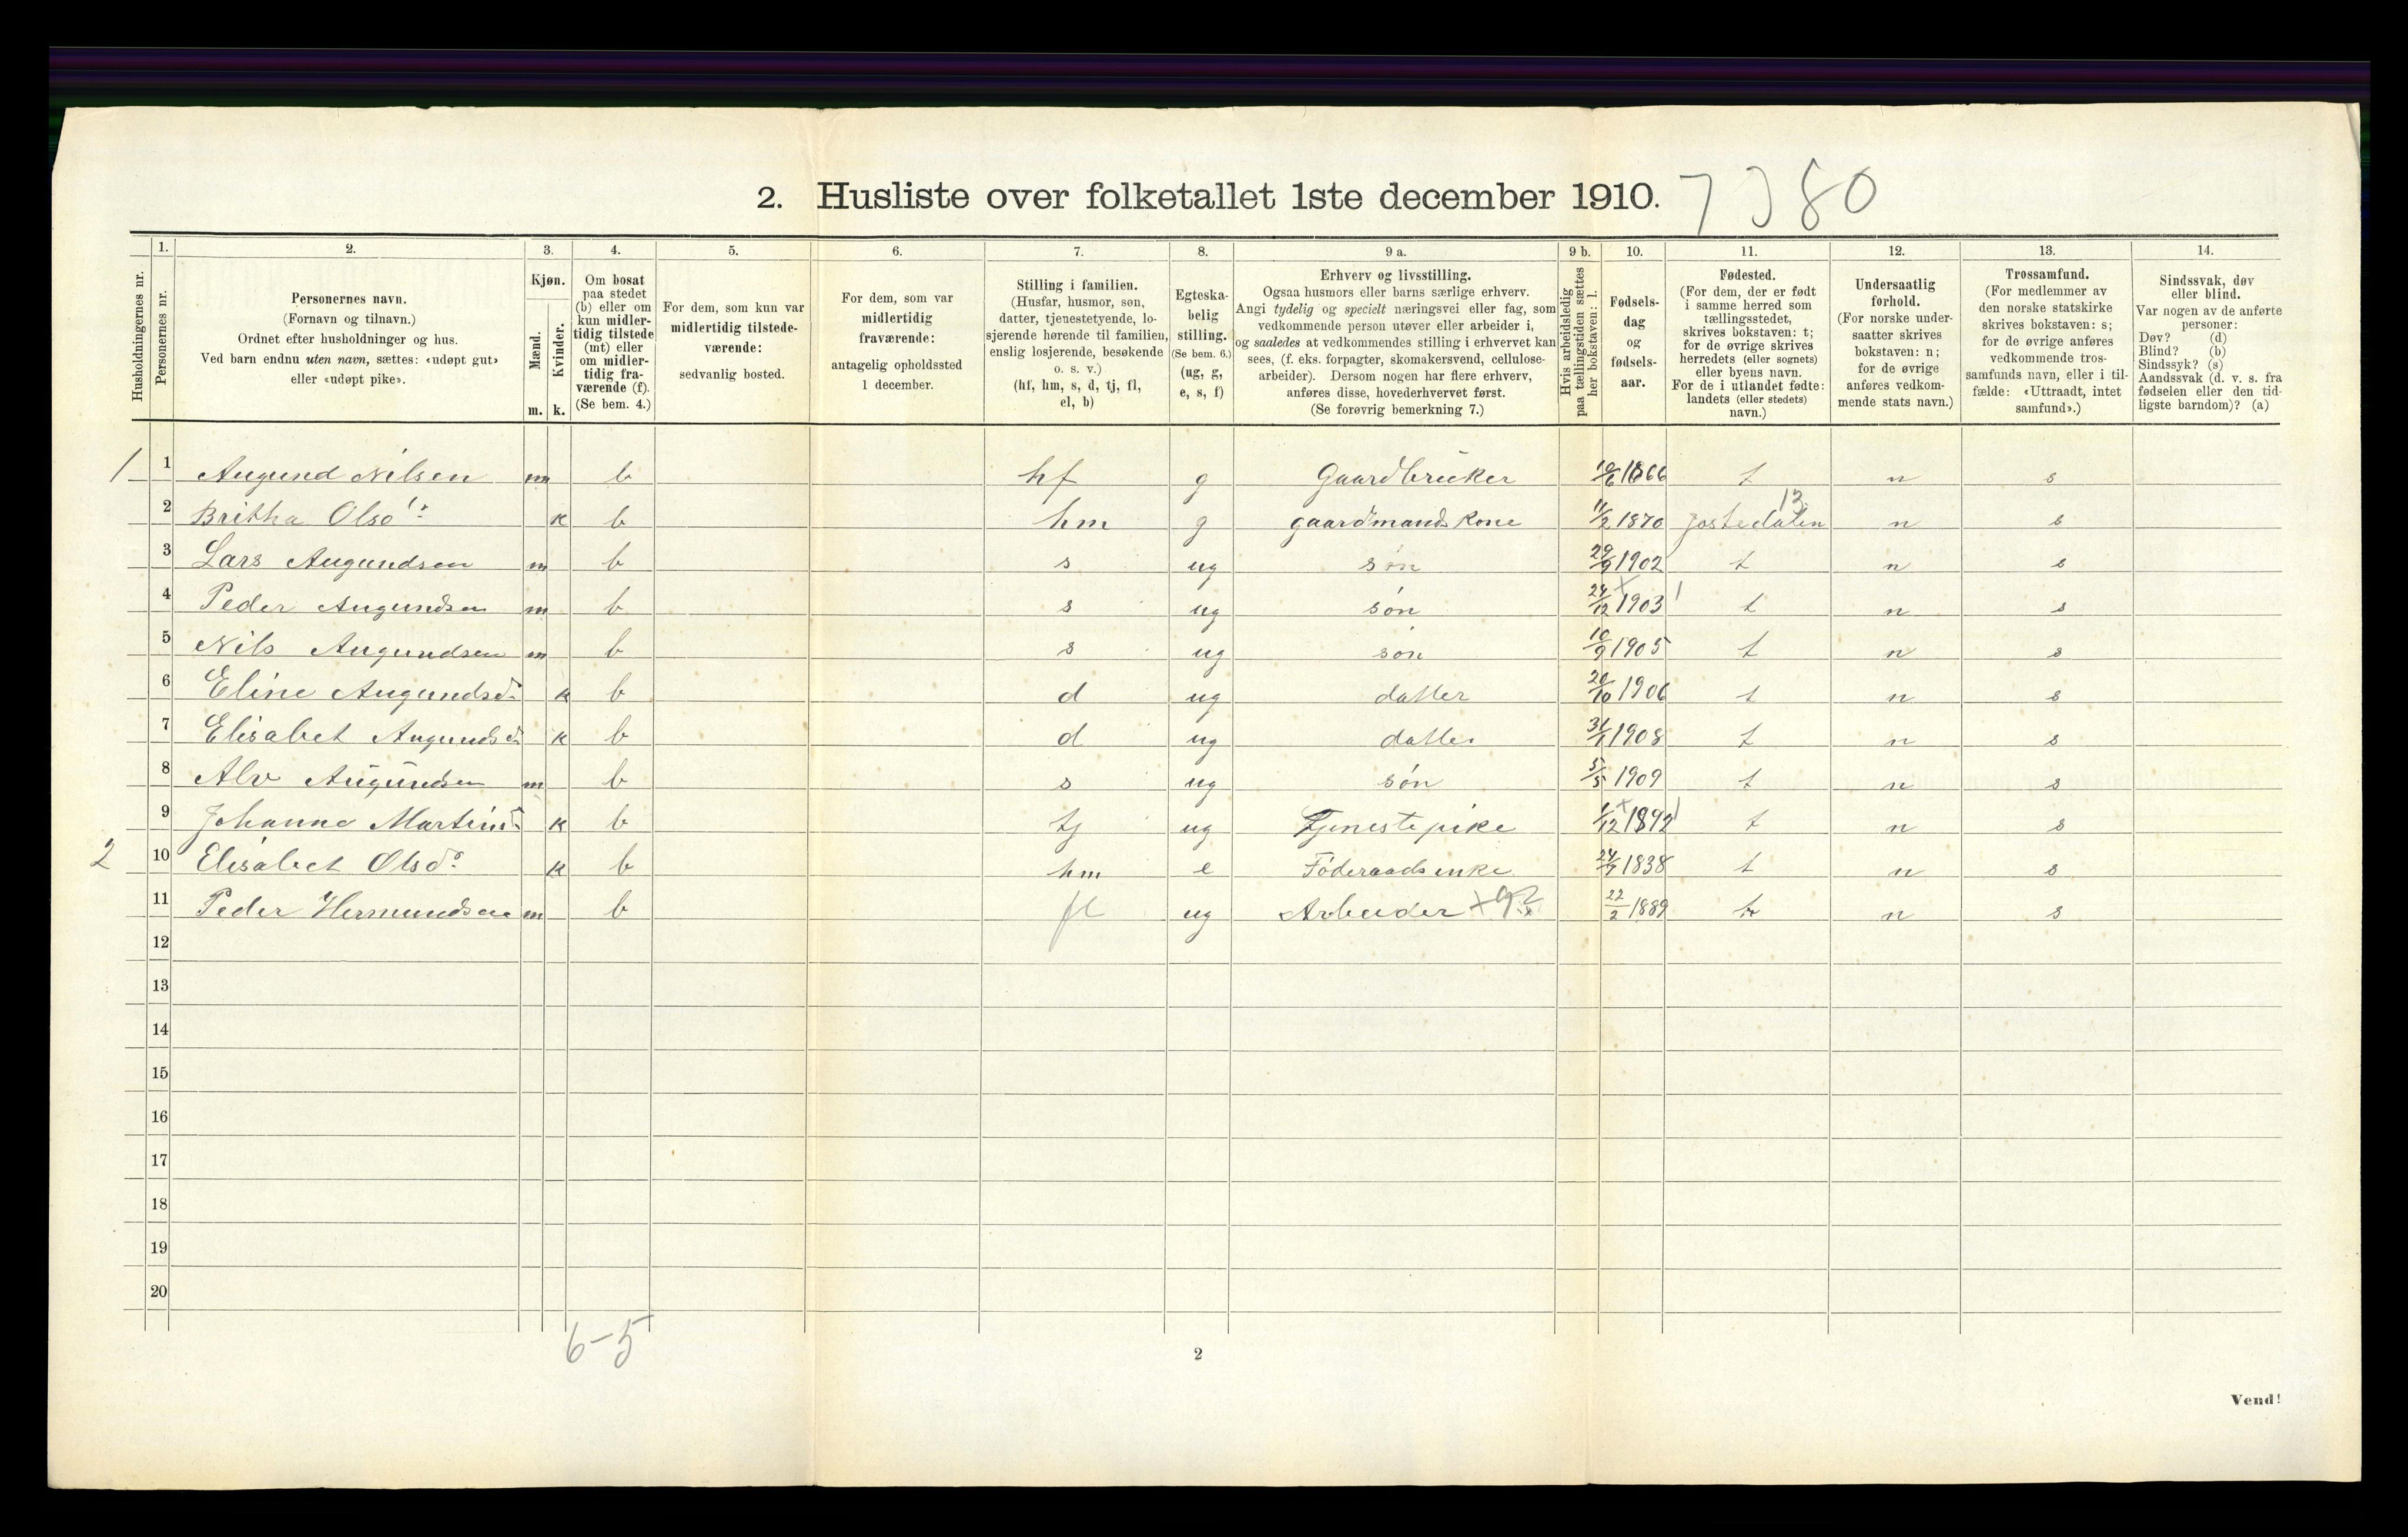 2. Husliste over folketallet 1ste december 1910. 7380
1. 2. 3. 4. 5. 6. 7. 8. 9 a. 9 b. 10. 11. 12. 13. 14.
Husholdningernes nr.
Personernes nr.
Personernes navn.
(Fornavn og tilnavn.)
Ordnet efter husholdninger og hus.
Ved barn endnu uten navn, sættes: «udøpt gut»
eller «udøpt pike».
Kjøn.
Mænd.
Kvinder.
m. k.
Om bosat
paa stedet
(b) eller om
kun midler-
tidig tilstede
(mt) eller
om midler-
tidig fra-
værende (f).
(Se bem. 4.)
For dem, som kun var
midlertidig tilstede-
værende:
sedvanlig bosted.
For dem, som var
midlertidig
fraværende:
antagelig opholdssted
1 december.
Stilling i familien.
(Husfar, husmor, søn,
datter, tjenestetyende, lo-
sjerende hørende til familien,
enslig losjerende, besøkende
o. s. v.)
(hf, hm, s, d, tj, fl,
el, b)
Egteska-
belig
stilling.
(Se bem. 6.)
(ug, g,
e, s, f)
Erhverv og livsstilling.
Ogsaa husmors eller barns særlige erhverv.
Angi tydelig og specielt næringsvei eller fag, som
vedkommende person utøver eller arbeider i,
og saaledes at vedkommendes stilling i erhvervet kan
sees, (f. eks. forpagter, skomakersvend, cellulose-
arbeider). Dersom nogen har flere erhverv,
anføres disse, hovederhvervet først.
(Se forøvrig bemerkning 7.)
Hvis arbeidsledig
paa tællingstiden sættes
her bokstaven: l.
Fødsels-
dag
og
fødsels-
aar.
Fødested.
(For dem, der er født
i samme herred som
tællingsstedet,
skrives bokstaven: t;
for de øvrige skrives
herredets (eller sognets)
eller byens navn.
For de i utlandet fødte:
landets (eller stedets)
navn.)
Undersaatlig
forhold.
(For norske under-
saatter skrives
bokstaven: n;
for de øvrige
anføres vedkom-
mende stats navn.)
Trossamfund.
(For medlemmer av
den norske statskirke
skrives bokstaven: s;
for de øvrige anføres
vedkommende tros-
samfunds navn, eller i til-
fælde: «Uttraadt, intet
samfund».)
Sindssvak, døv
eller blind.
Var nogen av de anførte
personer:
Døv? (d)
Blind? (b)
Sindssyk? (s)
Aandssvak (d. v. s. fra
fødselen eller den tid-
ligste barndom)? (a)
1 1 Augund Nilsen m b hf g Gaardbruker 10/6 1866 t n s
13
2 Britha Olsd: k b hm g gaardmandskone 11/2 1870 Jostedalen n s
3 Lars Augundsen m b s ug søn 29/9 1902 t n s
4 Peder Augundsen m b s ug søn 24/12 1903 t n s
5 Nils Augundsen m b s ug søn 10/9 1905 t n s
6 Eline Augundsd: k b d ug datter 20/10 1906 t n s
7 Elisabet Augundsd: k b d ug datter 31/1 1908 t n s
8 Alv Augundsen m b s ug søn 5/5 1909 t n s
9 Johanne Martinsd: k b tj ug Tjenestepike 1/12 1892 t n s
2 10 Elisabet Olsd: k b hm e Føderaadsenke 24/9 1838 t n s
11 Peder Hermundsen m b fl ug Arbeider 22/2 1889 t n s
12
13
14
15
16
17
18
19
20
6-5
2
Vend!